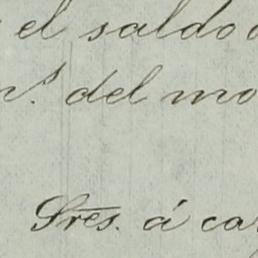 el saldo
del mo
Sres. á ca